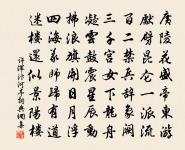 廣陵花盛帝東遊
劈昆仑一派流
百二禁兵辞象闕
三千宮女下龍舟
凝雲鼓震星辰動
拂浪旗開日月浮
四海義師歸有道
迷樓還似景陽樓
許渾汴河亭